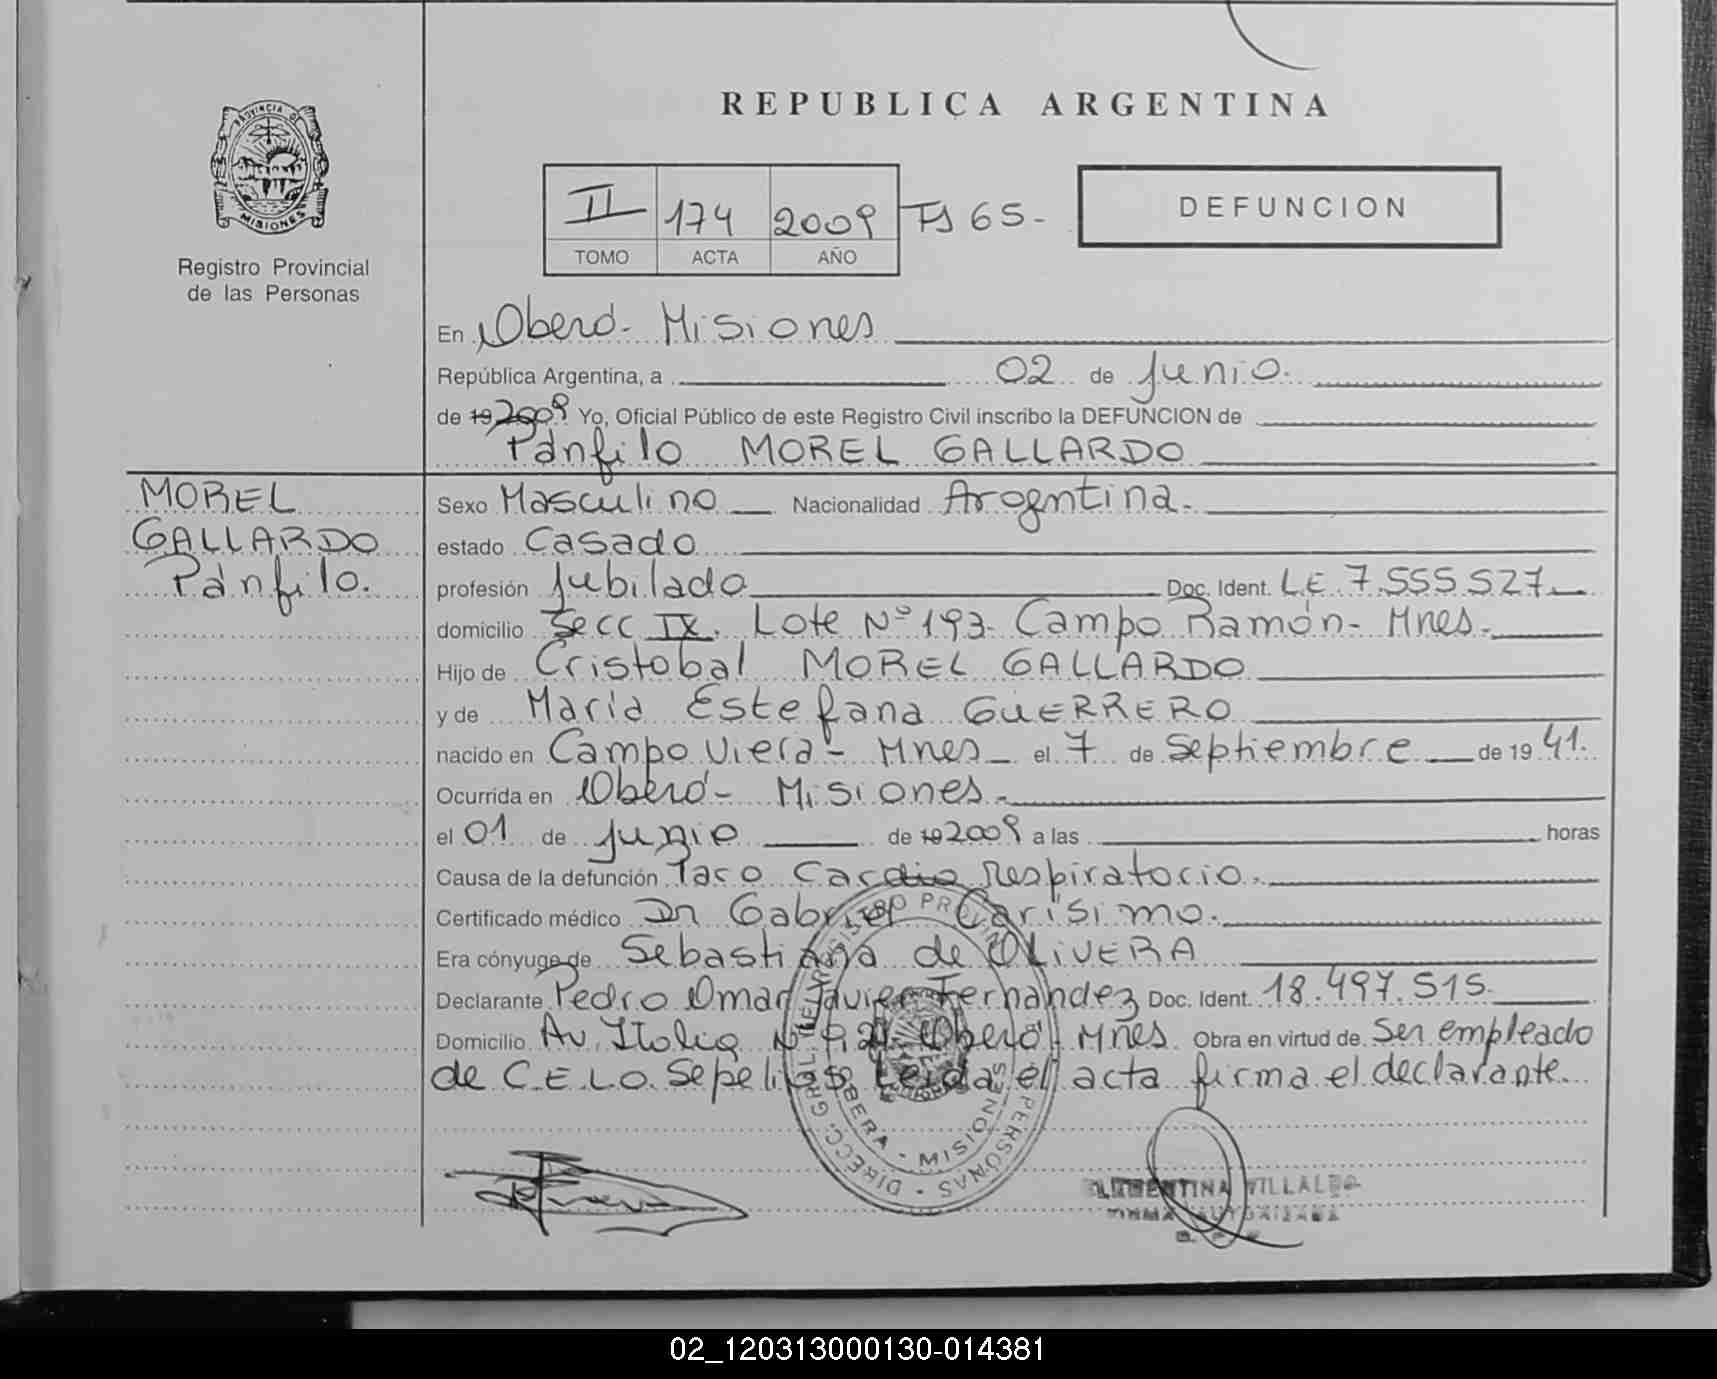 REPUBLICA ARGENTINA
PROVINCIA DE
MISIONES
Registro Provincial
de las Personas
II 174 2009 Fs 65-
TOMO ACTA AÑO
DEFUNCION
En Oberá- Misiones
República Argentina, a 02 de Junio.
de 19 2009 Yo, Oficial Público de este Registro Civil inscribo la DEFUNCION de
Pánfilo MOREL GALLARDO
MOREL
GALLARDO
Pánfilo.
Sexo Masculino Nacionalidad Argentina.
estado Casado
profesión Jubilado Doc. Ident. L.E. 7.555.527
domicilio Secc IX. Lote Nº 193- Campo Ramón- Mnes.
Hijo de Cristobal MOREL GALLARDO
y de María Estefana GUERRERO
nacido en Campo Viera- Mnes el 7 de Septiembre de 19 41.
Ocurrida en Oberá- Misiones.
el 01 de Junio de 19 2009 a las horas
Causa de la defunción Paro Cardio Respiratorio.
Certificado médico Dr Gabriel Carísimo.
Era cónyuge de Sebastiana de OLIVERA
Declarante Pedro Omar Javier Fernández Doc. Ident. 18.497.515
Domicilio Av. Italia Nº Oberá Mnes. Obra en virtud de Ser empleado
de C.E.L.O. Sepelios. Leída el acta firma el declarante.
DIRECC. GRAL. DE REGISTRO PROVINCIAL PERSONAS
OBERA - MISIONES
VILLALBA
FIRMA AUTORIZADA
02_120313000130-014381